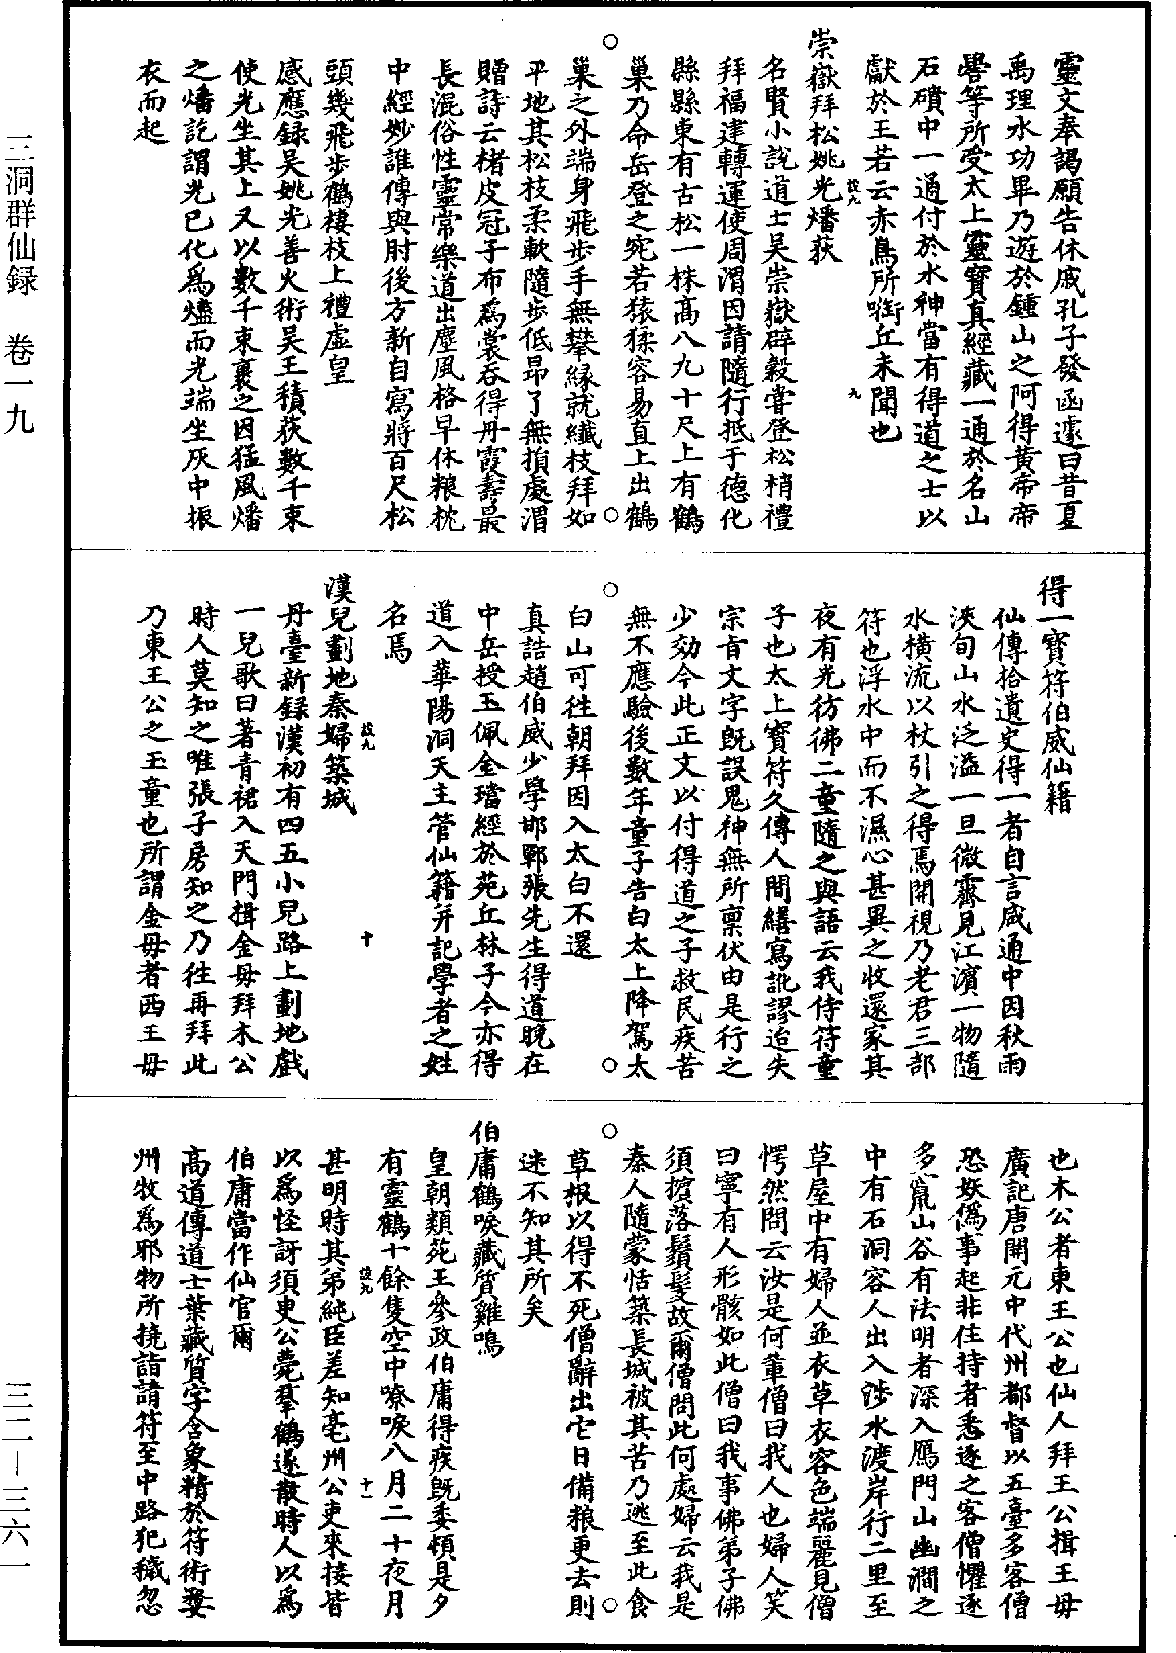 靈文奉謁願告休戚孔子發函遽曰昔夏
禹理水功畢乃遊於鍾山之阿得黃帝帝
嚳等所受太上靈寶真經藏一通於名山
石磧中一通付於水神當有得道之士以
獻於王若云赤鳥所啣丘未聞也
崇嶽拜松姚光燔荻
設九
九
名賢小說道士吳崇嶽辟穀嘗登松梢禮
拜福建轉運使周渭因請隨行抵于德化
縣縣東有古松一株高八九十尺上有鶴
巢乃命岳登之宛若猿猱容易直上出鶴
巢之外端身飛步手無攀緣就纖枝拜如
平地其松枝柔軟隨步低昂了無損處渭
贈詩云楮皮冠子布為裳吞得丹霞壽最
長混俗性靈常樂道出塵風格早休粮枕
中經妙誰傳與肘後方新自寫將百尺松
頭幾飛步鶴棲枝上禮虛皇
感應録吳姚光善火術吳王積荻數千束
使光坐其上又以數千束裹之因猛風燔
之燔訖謂光已化為燼而光端坐灰中振
衣而起
得一寶符伯威仙籍
仙傳拾遺史得一者自言咸通中因秋雨
浹旬山水泛溢一旦微霽見江濱一物隨
水橫流以杖引之得焉開視乃老君三部
符也浮水中而不濕心甚異之收還家其
夜有光彷彿二童隨之與語云我侍符童
子也太上寶符久傳人間繕寫訛謬迨失
宗旨文字既誤鬼神無所禀伏由是行之
少効今此正文以付得道之子救民疾苦
無不應驗後數年童子告曰太上降駕太
白山可往朝拜因入太白不還
真誥趙伯威少學邯鄲張先生得道晚在
中岳授玉佩金璫經於苑丘林子今亦得
道入華陽洞天主管仙籍并記學者之姓
名焉
設九
十
漢兒劃地秦婦築城
丹臺新録漢初有四五小兒路上劃地戲
一兒歌曰著青裙入天門揖金母拜木公
時人莫知之唯張子房知之乃往再拜此
乃東王公之玉童也所謂金母者西王母
也木公者東王公也仙人拜王公揖王母
廣記唐開元中代州都督以五臺多客僧
恐妖偽事起非住持者悉逐之客僧懼逐
多竄山谷有法明者深入鴈門山幽澗之
中有石洞容人出入涉水渡岸行二里至
草屋中有婦人並衣草衣容色端麗見僧
愕然問云汝是何輩僧曰我人也婦人笑
曰寧有人形骸如此僧曰我事佛弟子佛
須擯落鬚髮故爾僧問此何處婦云我是
秦人隨蒙恬築長城被其苦乃逃至此食
草根以得不死僧辭出它日備粮更去則
迷不知其所矣
伯庸鶴唳藏質雞鳴
皇朝類苑王參政伯庸得疾既委頓是夕
有靈鶴十餘隻空中嘹唳八月二十夜月
設九
十一
甚明時其弟純臣差知亳州公吏來接皆
以為怪訝須臾公薨羣鶴遂散時人以為
伯庸當作仙官爾
高道傳道士葉藏質字含象精於符術婺
州牧為邪物所撓詣請符至中路犯穢忽
三洞群仙録　卷一九
三二—三六一